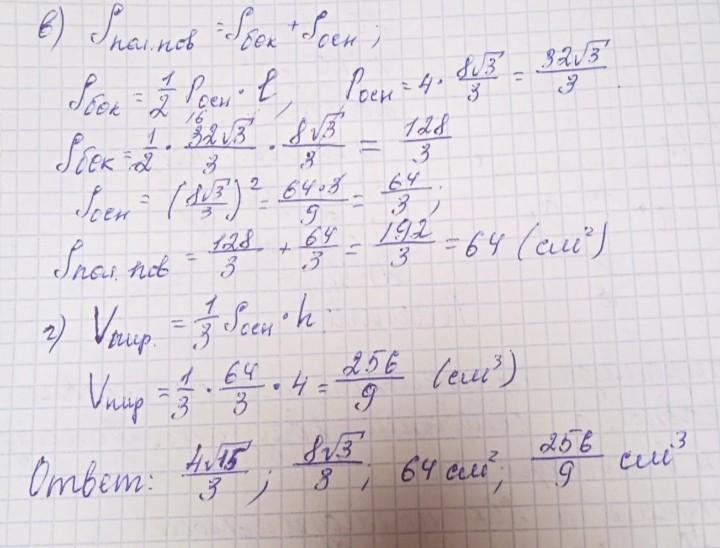 в) Sпол.пов = Sбок + Sосн ;
Sбок = 1/2 Pосн · l, Pосн = 4 · 8√3/3 = 32√3/3
Sбок = 1/2 · 16 32√3/3 · 8√3/3 = 128/3
Sосн = (8√3/3)² = 64·3/9 = 64/3 ;
Sпол. пов = 128/3 + 64/3 = 192/3 = 64 (см²)
г) Vпир. = 1/3 Sосн · h.
Vпир = 1/3 · 64/3 · 4 = 256/9 (см³)
Ответ: 4√15/3 ; 8√3/3 ; 64 см² ; 256/9 см³